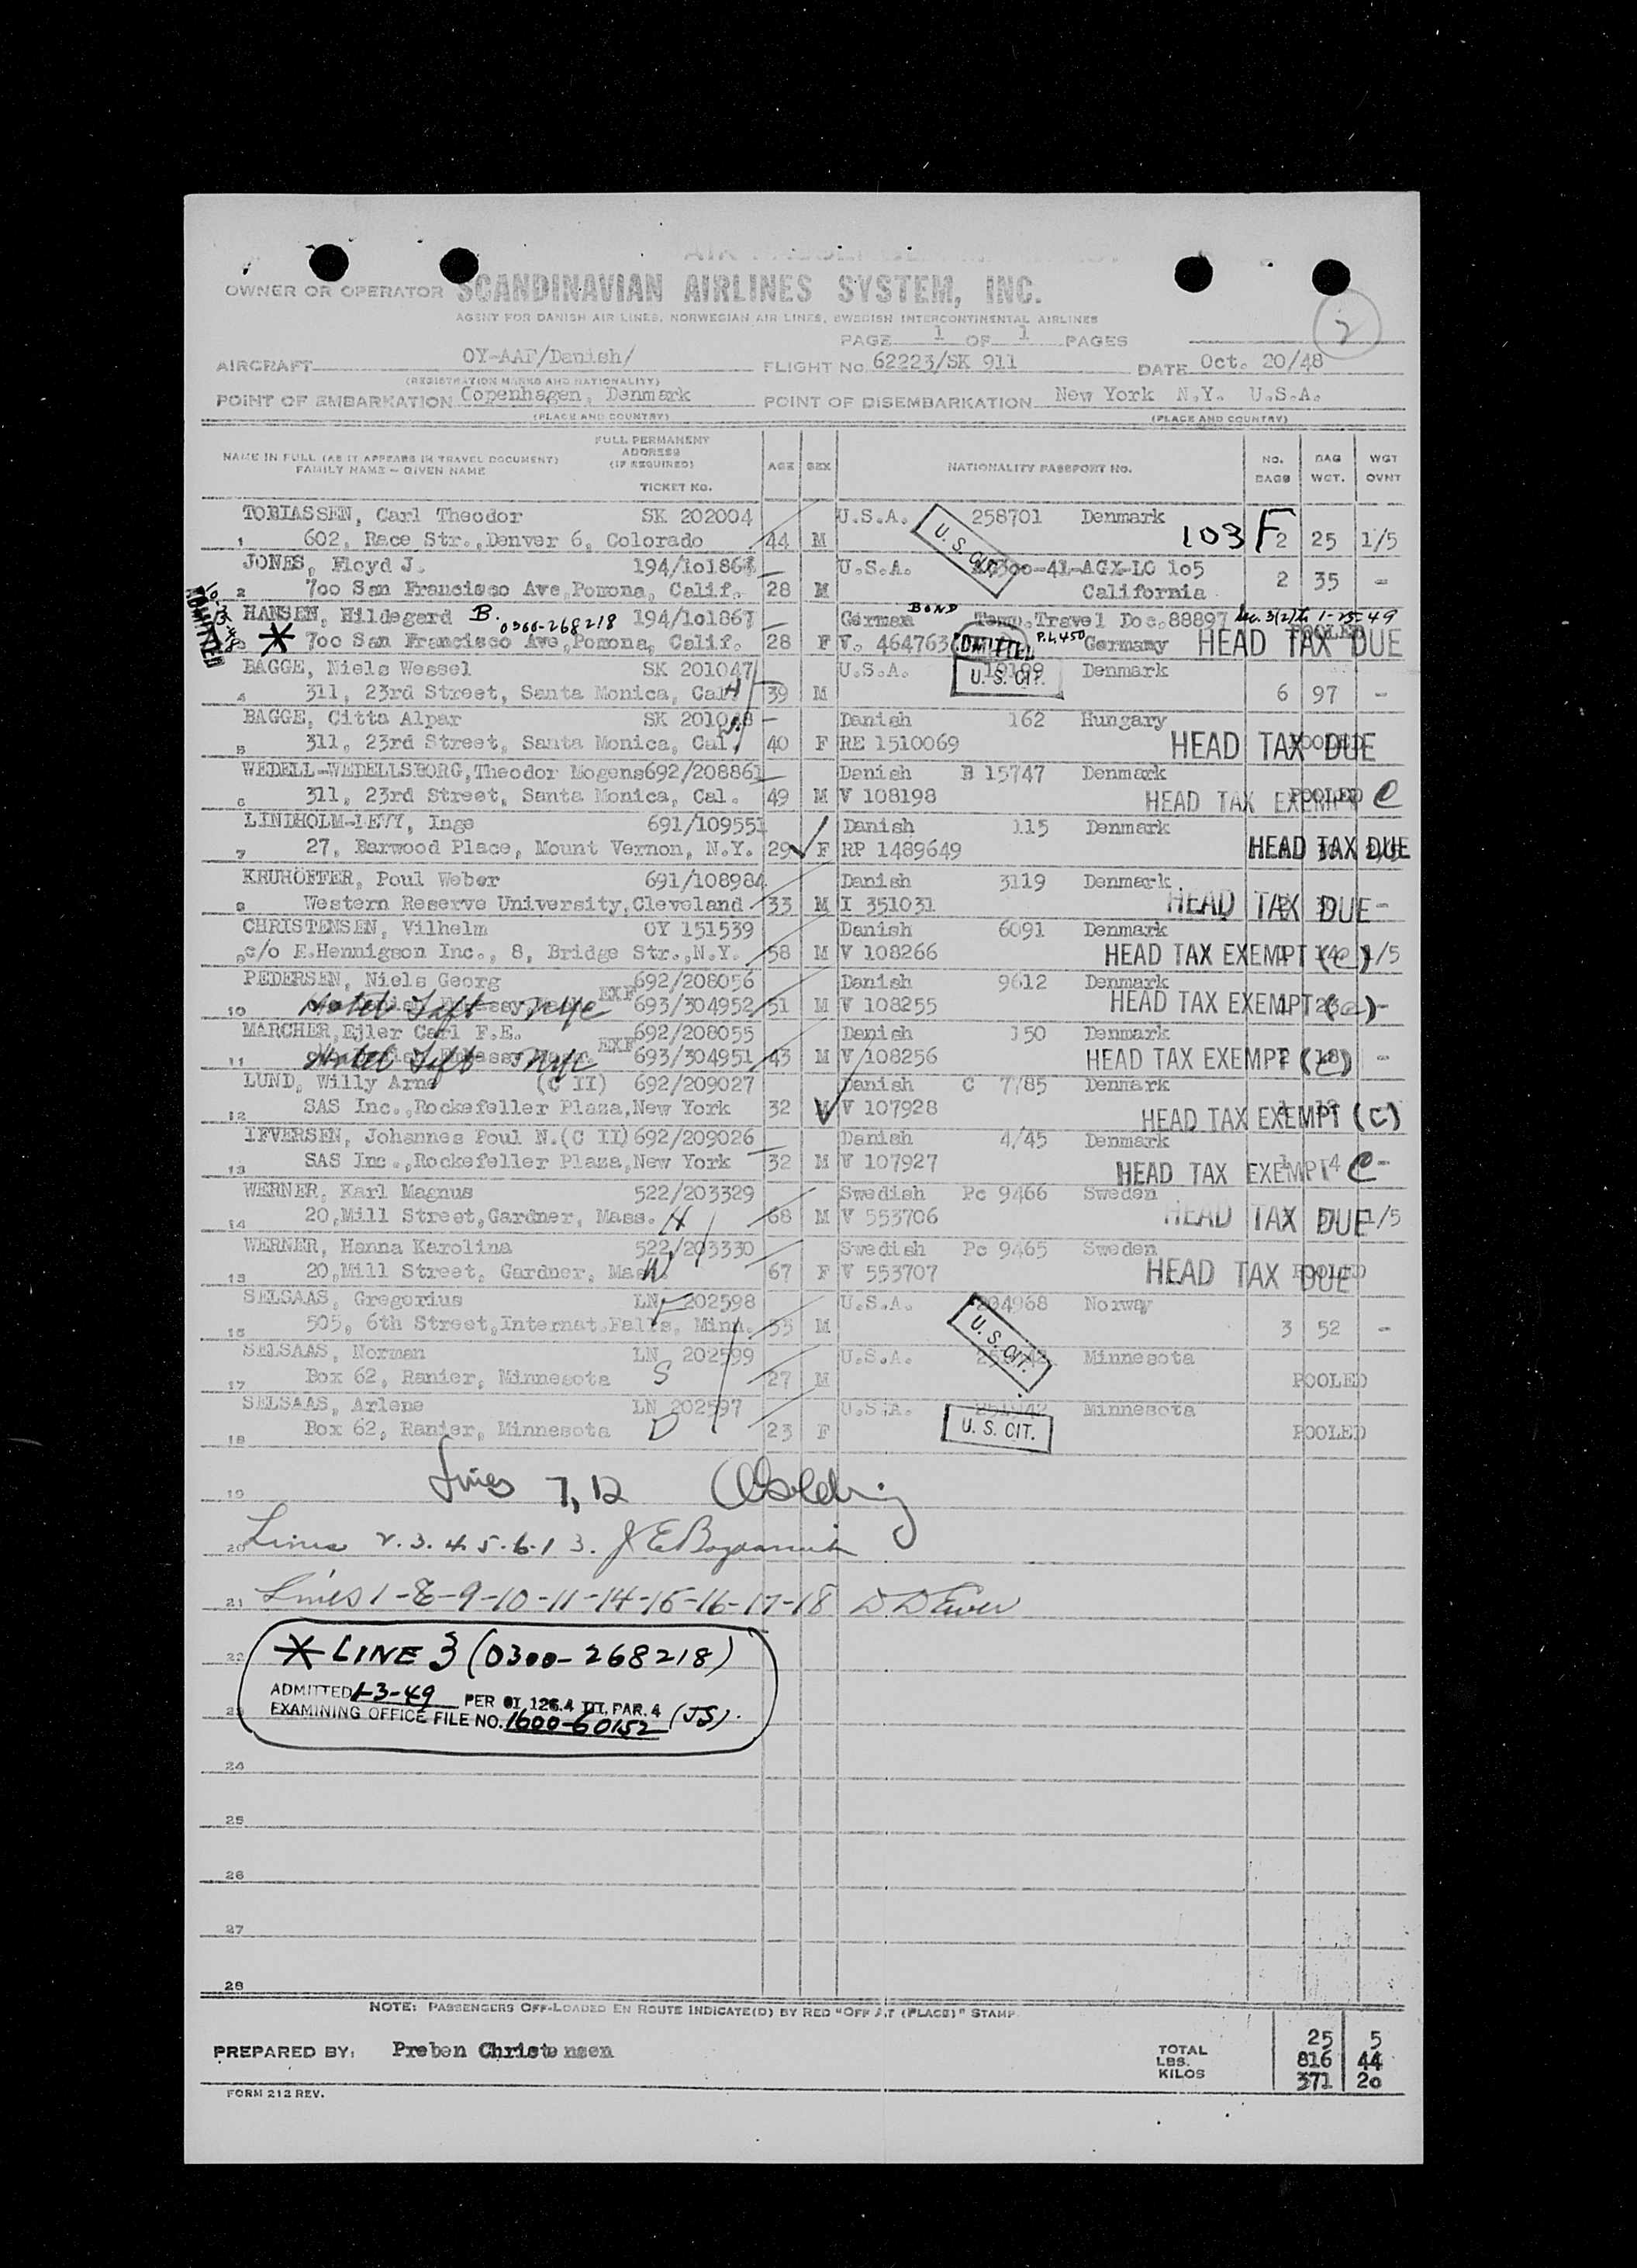 OWNER OR OPERATOR SCANDINAVIAN AIRLINES SYSTEM, INC.
AGENT FOR DANISH AIR LINES, NORWEGIAN AIR LINES, SWEDISH INTERCONTINENTAL AIRLINES
2
PAGE 1 OF 1 PAGES
AIRCRAFT OY-AAF/Danish/ FLIGHT No. 62223/SK 911 DATE Oct. 20/48
(REGISTRATION MARKS AND NATIONALITY)
POINT OF EMBARKATION Copenhagen, Denmark POINT OF DISEMBARKATION New York N.Y. U.S.A.
(PLACE AND COUNTRY) (PLACE AND COUNTRY)
NAME IN FULL (AS IT APPEARS IN TRAVEL DOCUMENT) FAMILY NAME – GIVEN NAME FULL PERMANENT ADDRESS (IF REQUIRED) TICKET No. AGE SEX NATIONALITY PASSPORT NO. NO. BAGS BAG WGT. WGT OVNT
TOBIASSEN, Carl Theodor SK 202004 U.S.A. 258701 Denmark
1 602, Race Str., Denver 6, Colorado 44 M U. S. CIT. 103 F 2 25 1/5
JONES, Floyd J. 194/101861 U.S.A. -4L-AGX-LO 105
2 700 San Francisco Ave, Pomona, Calif. 28 M California 2 35 -
ADMITTED
HANSEN, Hildegard B. 0300-268218 194/101867 German BOND Temp. Travel Doc. 88897 Sec. 3(2) to 1-25-49
3 * 700 San Francisco Ave, Pomona, Calif. 28 F V. 464763 ADMITTED P.L. 450 Germany POOLED HEAD TAX DUE
BAGGE, Niels Wessel SK 201047 U.S.A. Denmark
4 311, 23rd Street, Santa Monica, Cal. H 39 M U. S. CIT. 6 97 -
BAGGE, Citta Alpar SK 201048 Danish 162 Hungary
5 311, 23rd Street, Santa Monica, Cal. 40 F RE 1510069 POOLED HEAD TAX DUE
WEDELL-WEDELLSBORG, Theodor Mogens 692/208861 Danish B 15747 Denmark
6 311, 23rd Street, Santa Monica, Cal. 49 M V 108198 POOLED HEAD TAX EXEMPT C
LINDHOLM-LEVY, Inge 691/109551 Danish 115 Denmark
7 27, Barwood Place, Mount Vernon, N.Y. 29 F RP 1489649 HEAD TAX DUE
KRUHÖFFER, Poul Weber 691/108984 Danish 3119 Denmark
8 Western Reserve University, Cleveland 33 M I 351031 HEAD TAX DUE -
CHRISTENSEN, Vilhelm OY 151539 Danish 6091 Denmark
9 c/o E.Hennigson Inc., 8, Bridge Str., N.Y. 58 M V 108266 HEAD TAX EXEMPT (c) 1/5
PEDERSEN, Niels Georg 692/208056 Danish 9612 Denmark
10 Hotel Taft NYC EXF 693/304952 51 M V 108255 HEAD TAX EXEMPT (c) -
MARCHER, Ejler Carl F.E. 692/208055 Danish 150 Denmark
11 Hotel Taft NYC EXF 693/304951 43 M V 108256 HEAD TAX EXEMPT (c) -
LUND, Willy Arne (C II) 692/209027 Danish C 7/85 Denmark
12 SAS Inc., Rockefeller Plaza, New York 32 V 107928 HEAD TAX EXEMPT (C)
IFVERSEN, Johannes Poul N. (C II) 692/209026 Danish 4/45 Denmark
13 SAS Inc., Rockefeller Plaza, New York 32 M V 107927 HEAD TAX EXEMPT C -
WERNER, Karl Magnus 522/203329 Swedish Pc 9466 Sweden
14 20, Mill Street, Gardner, Mass. H 68 M V 553706 HEAD TAX DUE 1/5
WERNER, Hanna Karolina 522/203330 Swedish Pc 9465 Sweden
15 20, Mill Street, Gardner, Mass. W 67 F V 553707 POOLED HEAD TAX DUE
SELSAAS, Gregorius LN 202598 U.S.A. 204968 Norway
16 505, 6th Street, Internat.Falls, Minn. 55 M U. S. CIT. 3 52 -
SELSAAS, Norman LN 202599 U.S.A. Minnesota
17 Box 62, Ranier, Minnesota S 27 M POOLED
SELSAAS, Arlene LN 202597 U.S.A. 251942 Minnesota
18 Box 62, Ranier, Minnesota D 23 F U. S. CIT. POOLED
19 Lines 7, 12
20 Lines 2.3.4.5.6.13.
21 Lines 1-8-9-10-11-14-15-16-17-18
22 * LINE 3 (0300-268218)
ADMITTED 1-3-49 PER OI 126.4 III, PAR. 4
23 EXAMINING OFFICE FILE NO. 1600-60152 (JS).
24
25
26
27
28
NOTE: PASSENGERS OFF-LOADED EN ROUTE INDICATE(D) BY RED "OFF AT (PLACE)" STAMP
PREPARED BY: Preben Christensen
TOTAL 25 5
LBS. 816 44
KILOS 371 20
FORM 212 REV.